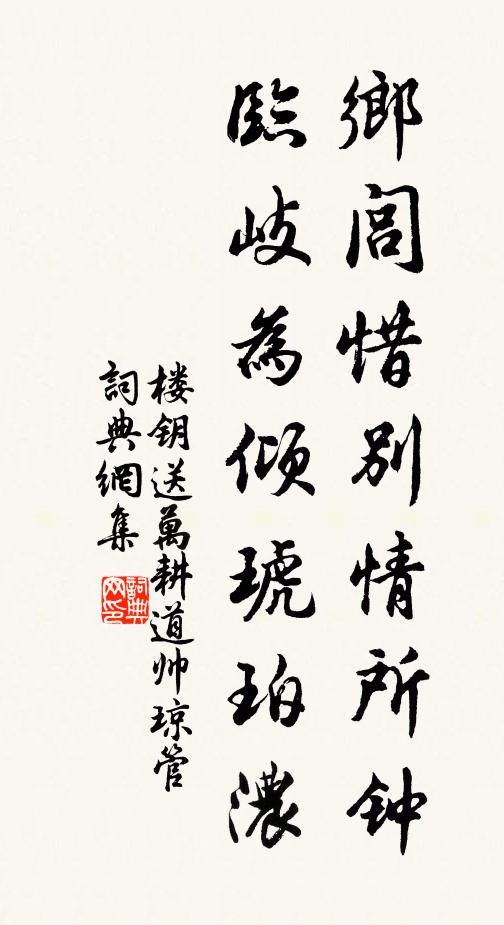 鄉閭惜別情所钟
臨岐為傾琥珀濃
楼钥送萬耕道帅琼管
詞典網集
詞典網印